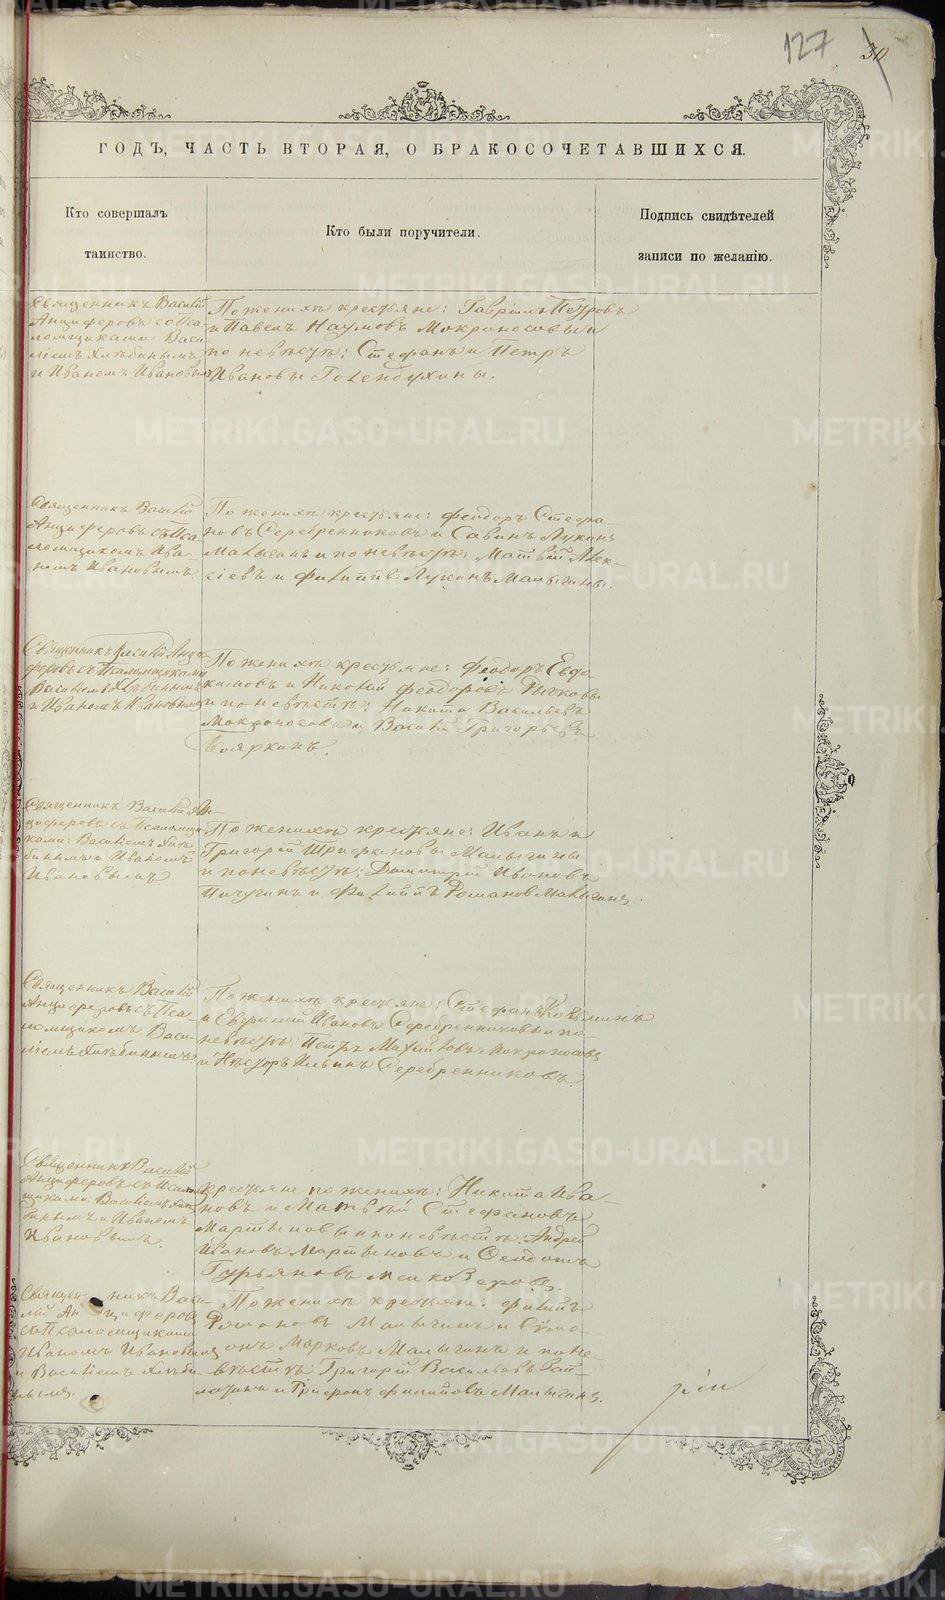 127
30
ГОДЪ, ЧАСТЬ ВТОРАЯ, О БРАКОСОЧЕТАВШИХСЯ.
Кто совершалъ
таинство.
Кто были поручители.
Подпись свидѣтелей
записи по желанію.
Священникъ Василій
Анциферовъ со Пса-
ломщиками Васи-
ліемъ Хлѣбинымъ
и Иваномъ Ивановымъ
По женихѣ крестьяне: Гавріилъ Петровъ
и Павелъ Наумовъ Мокроносовы и
по невѣстѣ: Стефанъ и Петръ
Ивановы Голендухины.
Священникъ Василій
Анциферовъ съ Пса-
ломщикомъ Ива-
номъ Ивановымъ
По женихѣ крестьяне: Феодоръ Стефа-
новъ Серебренниковъ и Савинъ Лукинъ
Малыгинъ и по невѣстѣ: Матвій Алек-
сіевъ и Филиппъ Лукинъ Малыгины.
Священникъ Василій Анци
феровъ съ Псаломщиками
Василіемъ Хлѣбинымъ
и Иваномъ Ивановымъ
По женихѣ крестьяне: Феодоръ Евдо
кимовъ и Николай Феодоровъ Рычковы
и по невѣстѣ: Никита Васильевъ
Мокроносовъ и Василій Григорьевъ
Бояркинъ.
Священникъ Василій Ан-
циферовъ съ Псаломщи-
ками: Василіемъ Хлѣ-
бинымъ и Иваномъ
Ивановымъ
По женихѣ крестьяне: Иванъ и
Григорій Трифановы Малыгины
и по невѣстѣ: Димитрій Ивановъ
Пичугинъ и Филиппъ Романовъ Малыгинъ.
Священникъ Василій
Анциферовъ съ Пса-
ломщикомъ Васи-
ліемъ Хлѣбинымъ
По женихѣ крестьяне: Стефанъ Козминъ
и Евфимій Ивановъ Серебренниковы и по
невѣстѣ: Петръ Михайловъ Мокроносовъ
и Несторъ Ильинъ Серебренниковъ.
Священникъ Василій
Анциферовъ съ Псалом
щиками Василіемъ Хлѣ
бинымъ и Иваномъ
Ивановымъ.
Крестьяне по женихѣ: Никита Ива
новъ и Матвѣй Стефановъ
Мартьяновы и по невѣстѣ: Андрей
Ивановъ Мартьяновъ и Феодотъ
Гурьяновъ Мелкозеровъ.
Священникъ Васи-
лій Анциферовъ
со Псаломщиками
Иваномъ Ивановымъ
и Василіемъ Хлѣби-
нымъ.
По женихѣ крестьяне: Филипъ
Романовъ Малыгинъ и Симе-
онъ Марковъ Малыгинъ и по не-
вѣстѣ: Григорій Васильевъ
и Трифонъ Филиповъ Малыгинъ.